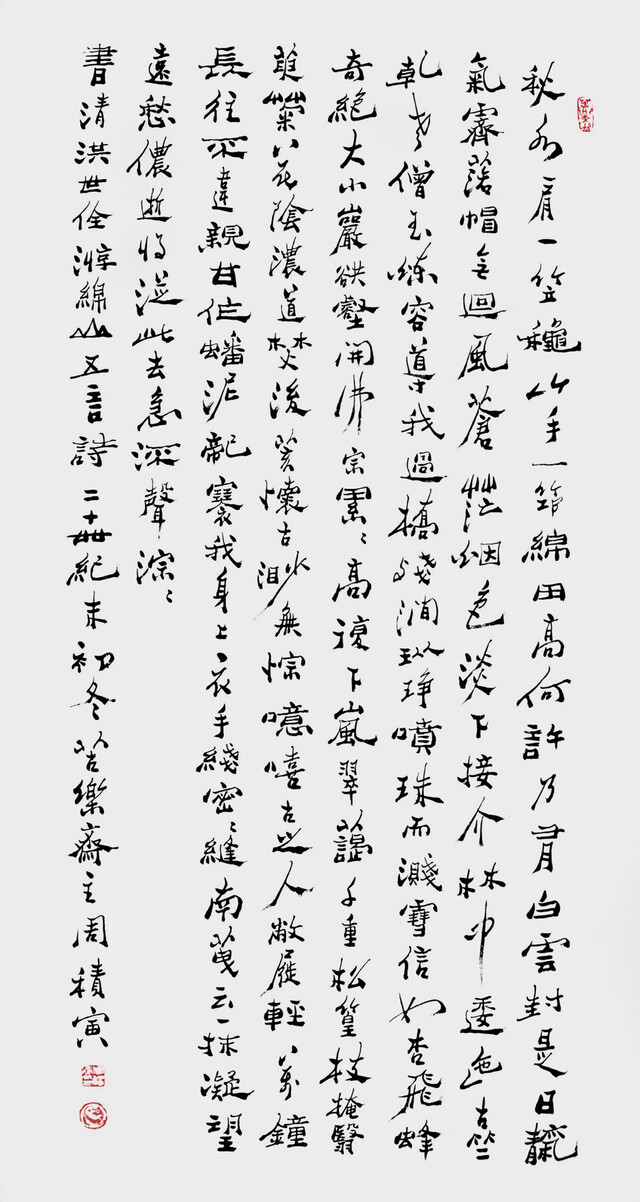 秋水肩一笠龝山手一筇綿田高何許乃白雲封是日
氣霽落帽無迴風蒼茫烟色淡下接介林中逶迤古竺
乾老僧玉練容導我過橋棧澗琤噴珠而濺雪信如杏飛蜂
奇絕大小巖壑開佛宗累〻高複下嵐翠千重松篁枝掩翳
花陰濃道焚後懷古淚無悰噫嘻古之人敝屣輕萬鐘
長往不違親甘作蟠泥龍褰我身上衣手綫密〻縫南云一抹凝望
遠愁儂逝將從此去急深聲淙〻
書清洪世佺遊綿山五言詩二十世紀末初冬苦樂齋主周積寅